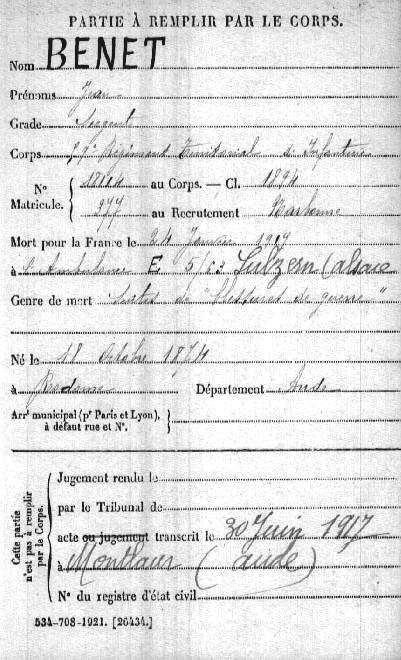 PARTIE À REMPLIR PAR LE CORPS.
Nom BENET
Prénoms Jean
Grade Sergent
Corps Régiment Territorial d'Infanterie
N° Matricule. au Corps. — Cl. 1894
977 au Recrutement Narbonne
Mort pour la France le 24 Janvier 1917
à l'Ambulance E 5/63 (alsace
Genre de mort Suites de "blessures de guerre"
Né le 18 Octobre 1874
à Département Aude
Arr^t municipal (p^r Paris et Lyon), à défaut rue et N°.
Cette partie n'est pas à remplir par le Corps.
Jugement rendu le
par le Tribunal de
acte ou jugement transcrit le 30 Juin 1917
à Montlaur (aude)
N° du registre d'état civil
534-708-1921. [26434.]